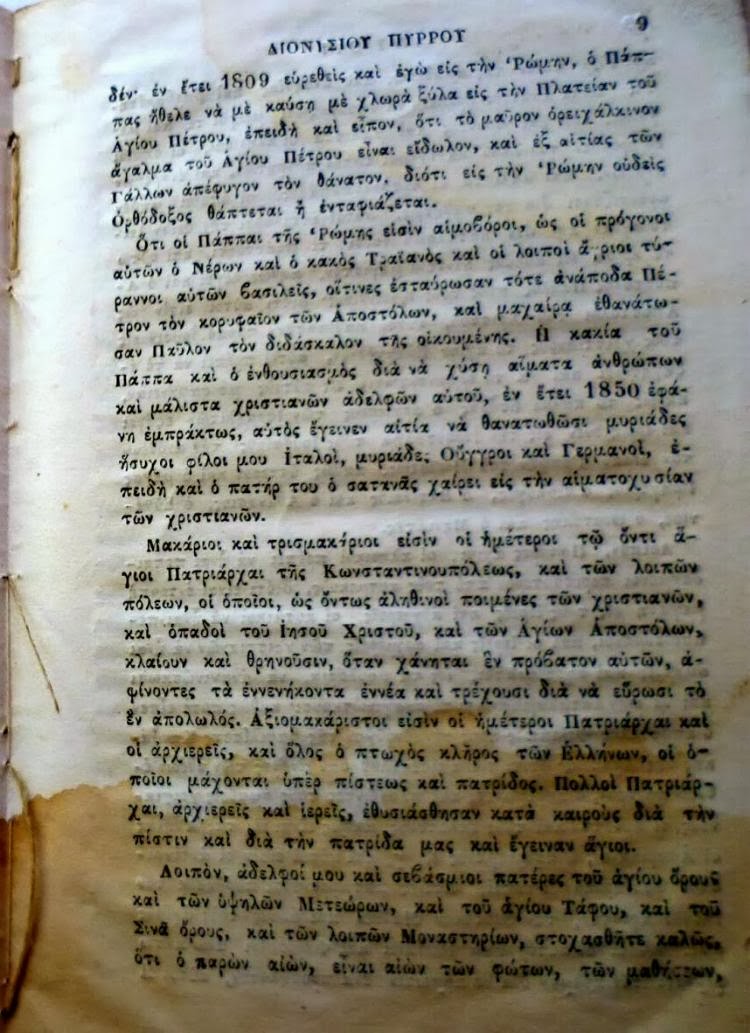 ΔΙΟΝΥΣΙΟΥ ΠΥΡΡΟΥ
9
δέν· ἐν ἔτει 1809 εὑρεθεὶς καὶ ἐγὼ εἰς τὴν Ῥώμην, ὁ Πάπ-
πας ἤθελε νὰ μὲ καύσῃ μὲ χλωρὰ ξύλα εἰς τὴν Πλατείαν τοῦ
Ἁγίου Πέτρου, ἐπειδὴ καὶ εἶπον, ὅτι τὸ μαῦρον ὀρειχάλκινον
ἄγαλμα τοῦ Ἁγίου Πέτρου εἶναι εἴδωλον, καὶ ἐξ αἰτίας τῶν
Γάλλων ἀπέφυγον τὸν θάνατον, διότι εἰς τὴν Ῥώμην οὐδεὶς
Ὀρθόδοξος θάπτεται ἢ ἐνταφιάζεται.
Ὅτι οἱ Πάππαι τῆς Ῥώμης εἰσὶν αἱμοβόροι, ὡς οἱ πρόγονοι
αὐτῶν ὁ Νέρων καὶ ὁ κακὸς Τραϊανὸς καὶ οἱ λοιποὶ ἄγριοι τύ-
ραννοι αὐτῶν βασιλεῖς, οἵτινες ἐσταύρωσαν τότε ἀνάποδα Πέ-
τρον τὸν κορυφαῖον τῶν Ἀποστόλων, καὶ μαχαίρᾳ ἐθανάτω-
σαν Παῦλον τὸν διδάσκαλον τῆς οἰκουμένης. Ἡ κακία τοῦ
Πάππα καὶ ὁ ἐνθουσιασμὸς διὰ νὰ χύσῃ αἵματα ἀνθρώπων
καὶ μάλιστα χριστιανῶν ἀδελφῶν αὐτοῦ, ἐν ἔτει 1850 ἐφά-
νη ἐμπράκτως, αὐτὸς ἔγεινεν αἰτία νὰ θανατωθῶσι μυριάδες
ἥσυχοι φίλοι μου Ἰταλοὶ, μυριάδες Οὔγγροι καὶ Γερμανοὶ, ἐ-
πειδὴ καὶ ὁ πατήρ του ὁ σατανᾶς χαίρει εἰς τὴν αἱματοχυσίαν
τῶν χριστιανῶν.
Μακάριοι καὶ τρισμακάριοι εἰσὶν οἱ ἡμέτεροι τῷ ὄντι ἅ-
γιοι Πατριάρχαι τῆς Κωνσταντινουπόλεως, καὶ τῶν λοιπῶν
πόλεων, οἱ ὁποῖοι, ὡς ὄντως ἀληθινοὶ ποιμένες τῶν χριστιανῶν,
καὶ ὀπαδοὶ τοῦ Ἰησοῦ Χριστοῦ, καὶ τῶν Ἁγίων Ἀποστόλων,
κλαίουν καὶ θρηνοῦσιν, ὅταν χάνηται ἓν πρόβατον αὐτῶν, ἀ-
φίνοντες τὰ ἐννενήκοντα ἐννέα καὶ τρέχουσι διὰ νὰ εὕρωσι τὸ
ἓν ἀπολωλός. Ἀξιομακάριστοι εἰσὶν οἱ ἡμέτεροι Πατριάρχαι καὶ
οἱ ἀρχιερεῖς, καὶ ὅλος ὁ πτωχὸς κλῆρος τῶν Ἑλλήνων, οἱ ὁ-
ποῖοι μάχονται ὑπὲρ πίστεως καὶ πατρίδος. Πολλοὶ Πατριάρ-
χαι, ἀρχιερεῖς καὶ ἱερεῖς, ἐθυσιάσθησαν κατὰ καιροὺς διὰ τὴν
πίστιν καὶ διὰ τὴν πατρίδα μας καὶ ἔγειναν ἅγιοι.
Λοιπὸν, ἀδελφοί μου καὶ σεβάσμιοι πατέρες τοῦ ἁγίου ὄρους
καὶ τῶν ὑψηλῶν Μετεώρων, καὶ τοῦ ἁγίου Τάφου, καὶ τοῦ
Σινᾶ ὄρους, καὶ τῶν λοιπῶν Μοναστηρίων, στοχασθῆτε καλῶς,
ὅτι ὁ παρὼν αἰὼν, εἶναι αἰὼν τῶν φώτων, τῶν μαθήσεων,